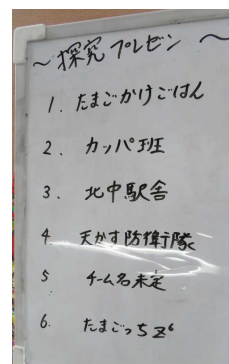 ～探究プレゼン～
1. たまごかけごはん
2. カッパ班
3. 北中駅舎
4. 天かす防衛隊
5 チーム名未定
6. たまごっちz⁶